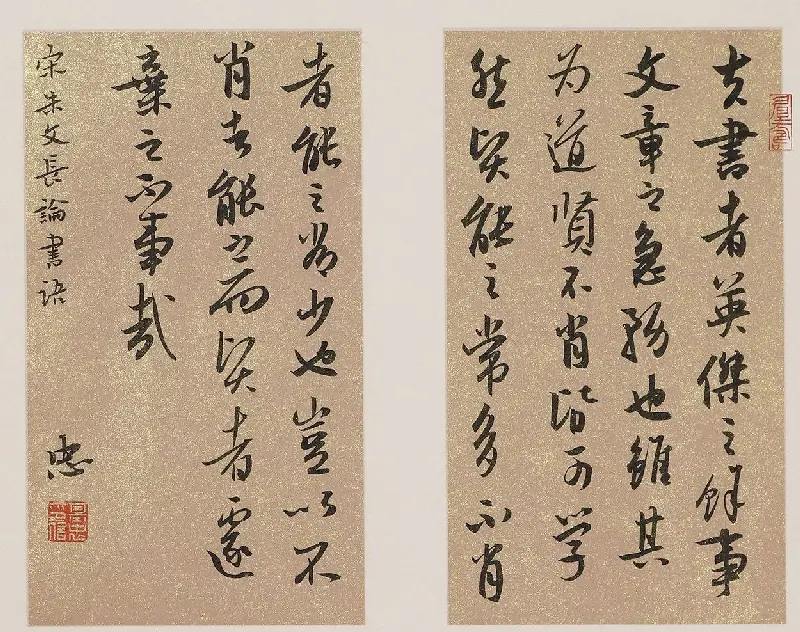 夫書者英傑之餘事
文章之急務也雖其
为道贤不肖皆可学
然贤能之常多不肖
者能之常少也豈以不
肖者能之而贤者遽
棄之不事哉
宋朱文長論書语
忠